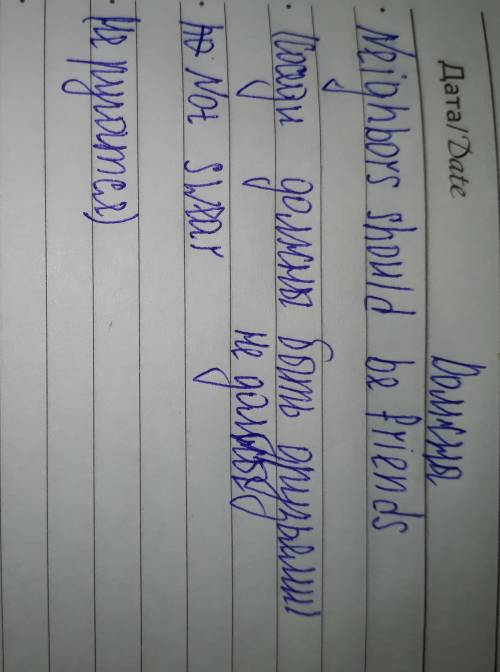 Дата/Date
Должны
• Neighbors should be friends
• Соседи должны быть друзьями
не должны
• Not swear
• Не ругатся)